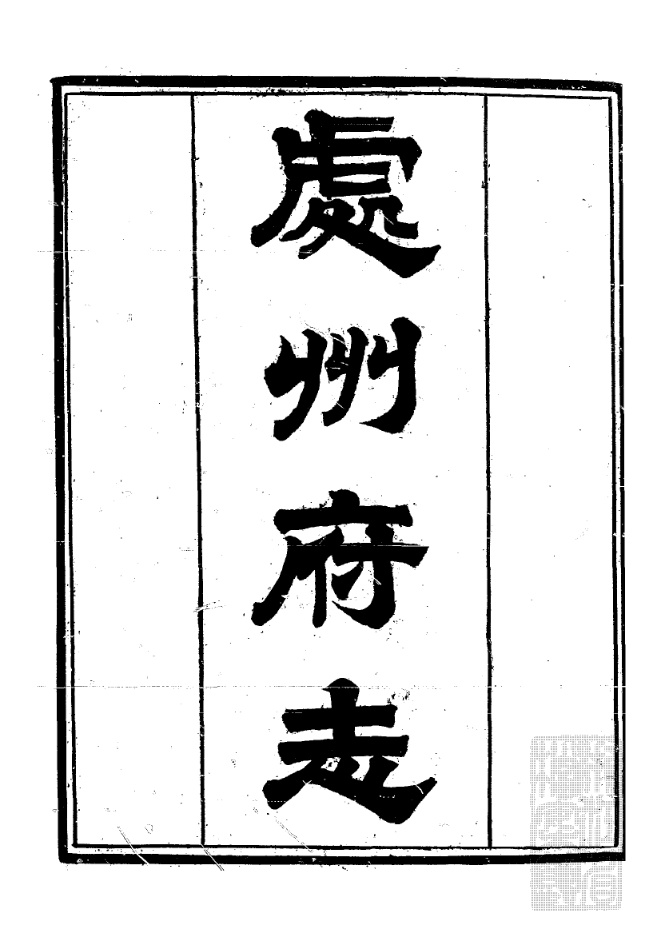 處州府志